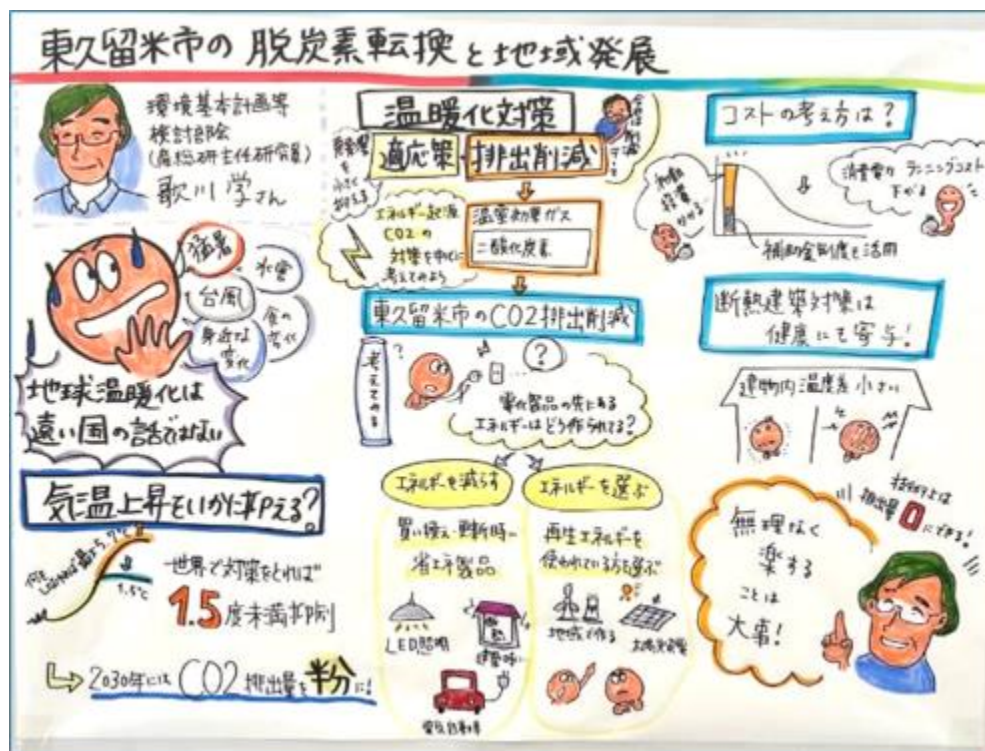 東久留米市の 脱炭素転換と地域発展
環境基本計画等
検討部会
(産総研主任研究員)
歌川 学さん
猛暑
台風
身近な
変化
食の
変化
地球温暖化は
遠い国の話ではない
気温上昇をいかに抑える?
1.5℃
世界で対策をとれば
1.5度未満抑制
2030年には CO2 排出量を半分に!
温暖化対策
適応策・排出削減
エネルギー起源
CO2の
対策を中心に
考えてみよう
温室効果ガス
二酸化炭素
東久留米市のCO2排出削減
考えてみる
?
?
電化製品の先にある
エネルギーはどう作られてる?
エネルギーを減らす
買い換え・更新時に
省エネ製品
LED照明
電気自動車
エネルギーを選ぶ
再生エネルギーを
使われている方を選ぶ
地域で作る
太陽光発電
コストの考え方は?
初期
投資
かかる
消費電力 ランニングコスト
下がる
補助金制度を活用
断熱建築対策は
健康にも寄与!
建物内温度差 小さい
無理なく
楽する
ことは
大事!
技術上は
排出量0にできる!